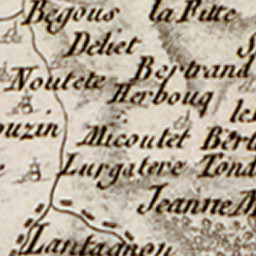 Begous la Fitte
Deliet
Noutete Bertrand
Herbouq
Micoutet
Lurgatere
Jeanne
Lantagnou